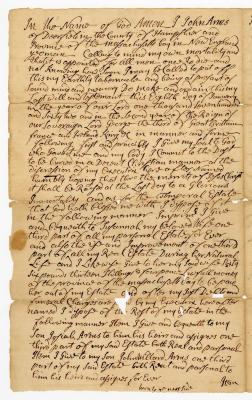 In the Name of God Amen. I John Arms
of Deerfield in the County of Hampshire and
Province of the Massachusetts bay in New England
yeoman Calling to mind my own mortality and
that it is appointed for all men once to die and
not knowing how soon I may be Called to put off
this my Earthly tabernacle and being at present of
sound mind and memory Do make and ordain this my
Last Will and Testament this Eighth day of
in the year of our Lord one thousand seven hundred
and Sixty one and in the first year of the Reign of
our Sovereign Lord George the third of Great Brittain
france and Ireland King &c in manner and form
following, first and principally I Give my Soul to God
who Gave it me and my body I Commit to the Dust
to be buried in a Decent Christian manner at the
discretion of my Executors here after named
humbly hoping that thro the merits of Jesus Christ
it shall be Raised at the Last day to a Glorious
Immortality and as to the Temporal Estate
that God hath blessed me with I dispose of it
in the following manner Imprimis I Give
and bequeath to Susannah my beloved wife one
third part of all my personal Estate for Ever
and also the use and Improvement of one third
part of all my Real Estate During her natural
life and I Likewise Give to her
Six pounds thirteen Shillings & fourpence lawful money
of the province of the Massachusetts bay to be paid
her out of my Estate after my Just Debts and
funeral Charges are paid by my Executors hereafter
named I dispose of the Rest of my Estate in the
following manner Item I Give and bequeath to my
Son Josiah Arms to him his heirs and assigns one
third part of my said Estate both Real and personal
Item I Give to my Son John Arms one third
part of my said Estate both Real and personal to
him his heirs and assigns for Ever
Item